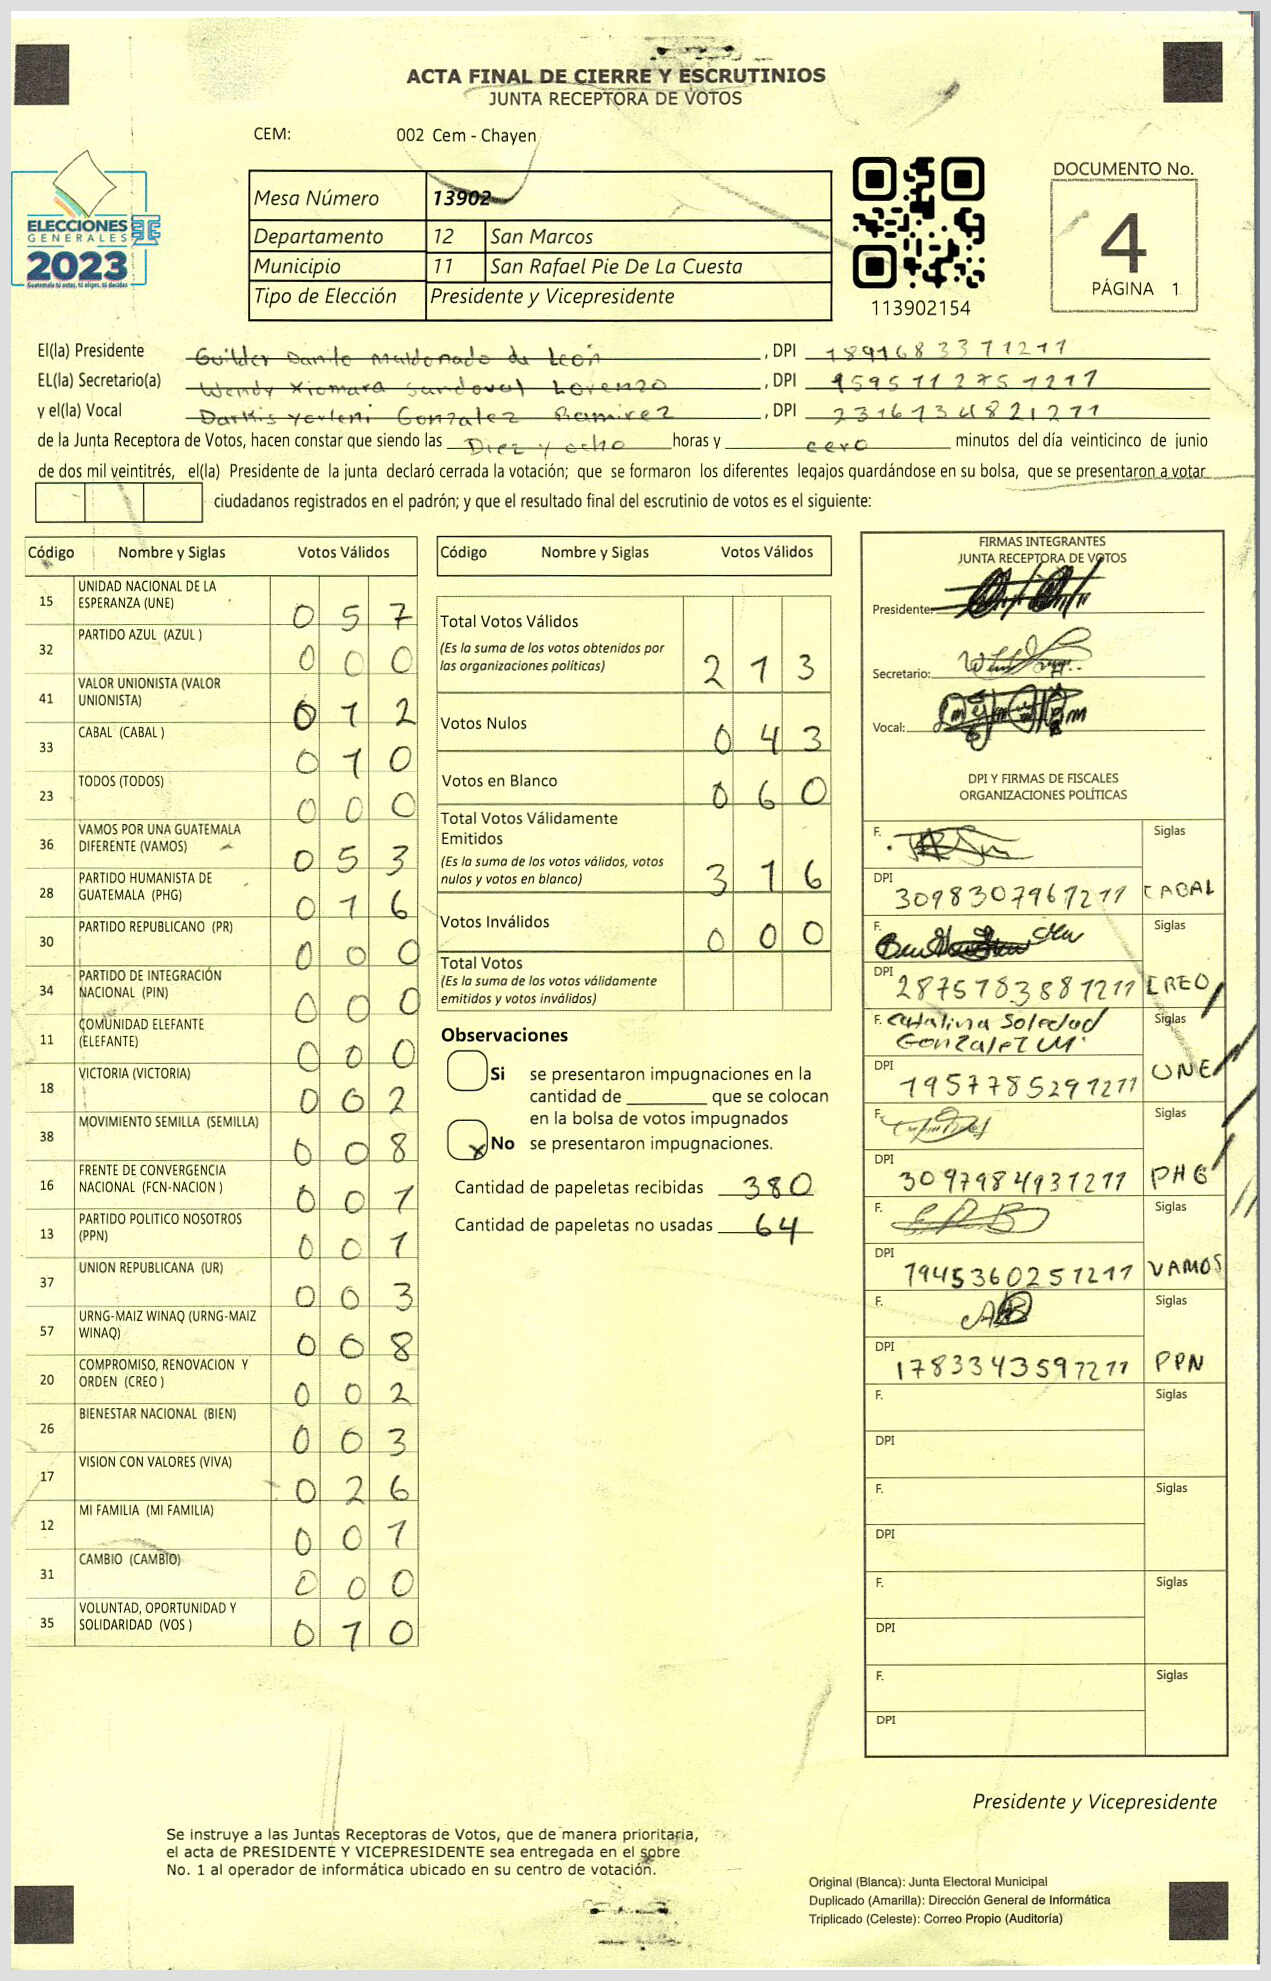 ACTA FINAL DE CIERRE Y ESCRUTINIOS
JUNTA RECEPTORA DE VOTOS
CEM: 002 Cem - Chayen
ELECCIONES
GENERALES
2023
Guatemala tú votas, tú eliges, tú decides
Mesa Número 13902
Departamento 12 San Marcos
Municipio 11 San Rafael Pie De La Cuesta
Tipo de Elección Presidente y Vicepresidente
113902154
DOCUMENTO No.
4
PÁGINA 1
El(la) Presidente Guilder Danilo Maldonado de León , DPI 1891683371211
EL(la) Secretario(a) Wendy Xiomara Sandoval Lorenzo , DPI 1595112751217
y el(la) Vocal Darkis Yerleni Gonzalez Ramirez , DPI 2316134821211
de la Junta Receptora de Votos, hacen constar que siendo las Diez y ocho horas y cero minutos del día veinticinco de junio
de dos mil veintitrés, el(la) Presidente de la junta declaró cerrada la votación; que se formaron los diferentes legajos quardándose en su bolsa, que se presentaron a votar
ciudadanos registrados en el padrón; y que el resultado final del escrutinio de votos es el siguiente:
Código Nombre y Siglas Votos Válidos
15 UNIDAD NACIONAL DE LA
ESPERANZA (UNE) 0 5 7
32 PARTIDO AZUL (AZUL ) 0 0 0
41 VALOR UNIONISTA (VALOR
UNIONISTA) 0 1 2
33 CABAL (CABAL ) 0 1 0
23 TODOS (TODOS) 0 0 0
36 VAMOS POR UNA GUATEMALA
DIFERENTE (VAMOS) 0 5 3
28 PARTIDO HUMANISTA DE
GUATEMALA (PHG) 0 1 6
30 PARTIDO REPUBLICANO (PR) 0 0 0
34 PARTIDO DE INTEGRACIÓN
NACIONAL (PIN) 0 0 0
11 COMUNIDAD ELEFANTE
(ELEFANTE) 0 0 0
18 VICTORIA (VICTORIA) 0 0 2
38 MOVIMIENTO SEMILLA (SEMILLA) 0 0 8
16 FRENTE DE CONVERGENCIA
NACIONAL (FCN-NACION ) 0 0 1
13 PARTIDO POLITICO NOSOTROS
(PPN) 0 0 1
37 UNION REPUBLICANA (UR) 0 0 3
57 URNG-MAIZ WINAQ (URNG-MAIZ
WINAQ) 0 0 8
20 COMPROMISO, RENOVACION Y
ORDEN (CREO ) 0 0 2
26 BIENESTAR NACIONAL (BIEN) 0 0 3
17 VISION CON VALORES (VIVA) 0 2 6
12 MI FAMILIA (MI FAMILIA) 0 0 1
31 CAMBIO (CAMBIO) 0 0 0
35 VOLUNTAD, OPORTUNIDAD Y
SOLIDARIDAD (VOS ) 0 1 0
Código Nombre y Siglas Votos Válidos
Total Votos Válidos
(Es la suma de los votos obtenidos por
las organizaciones políticas) 2 1 3
Votos Nulos 0 4 3
Votos en Blanco 0 6 0
Total Votos Válidamente
Emitidos
(Es la suma de los votos válidos, votos
nulos y votos en blanco) 3 1 6
Votos Inválidos 0 0 0
Total Votos
(Es la suma de los votos válidamente
emitidos y votos inválidos)
Observaciones
Si se presentaron impugnaciones en la
cantidad de ________ que se colocan
en la bolsa de votos impugnados
x No se presentaron impugnaciones.
Cantidad de papeletas recibidas 380
Cantidad de papeletas no usadas 64
FIRMAS INTEGRANTES
JUNTA RECEPTORA DE VOTOS
Presidente:
Secretario:
Vocal:
DPI Y FIRMAS DE FISCALES
ORGANIZACIONES POLÍTICAS
F. Siglas
DPI 3098307961211 CABAL
F. Siglas
DPI 2875183881211 CREO
F. Catalina Soledad Siglas
Gonzalez M.
DPI 1957785291211 UNE
F. Siglas
DPI 3097984931211 PHG
F. Siglas
DPI 1945360251211 VAMOS
F. Siglas
DPI 1783343591211 PPN
F. Siglas
DPI
F. Siglas
DPI
F. Siglas
DPI
F. Siglas
DPI
Presidente y Vicepresidente
Se instruye a las Juntas Receptoras de Votos, que de manera prioritaria,
el acta de PRESIDENTE Y VICEPRESIDENTE sea entregada en el sobre
No. 1 al operador de informática ubicado en su centro de votación.
Original (Blanca): Junta Electoral Municipal
Duplicado (Amarilla): Dirección General de Informática
Triplicado (Celeste): Correo Propio (Auditoría)